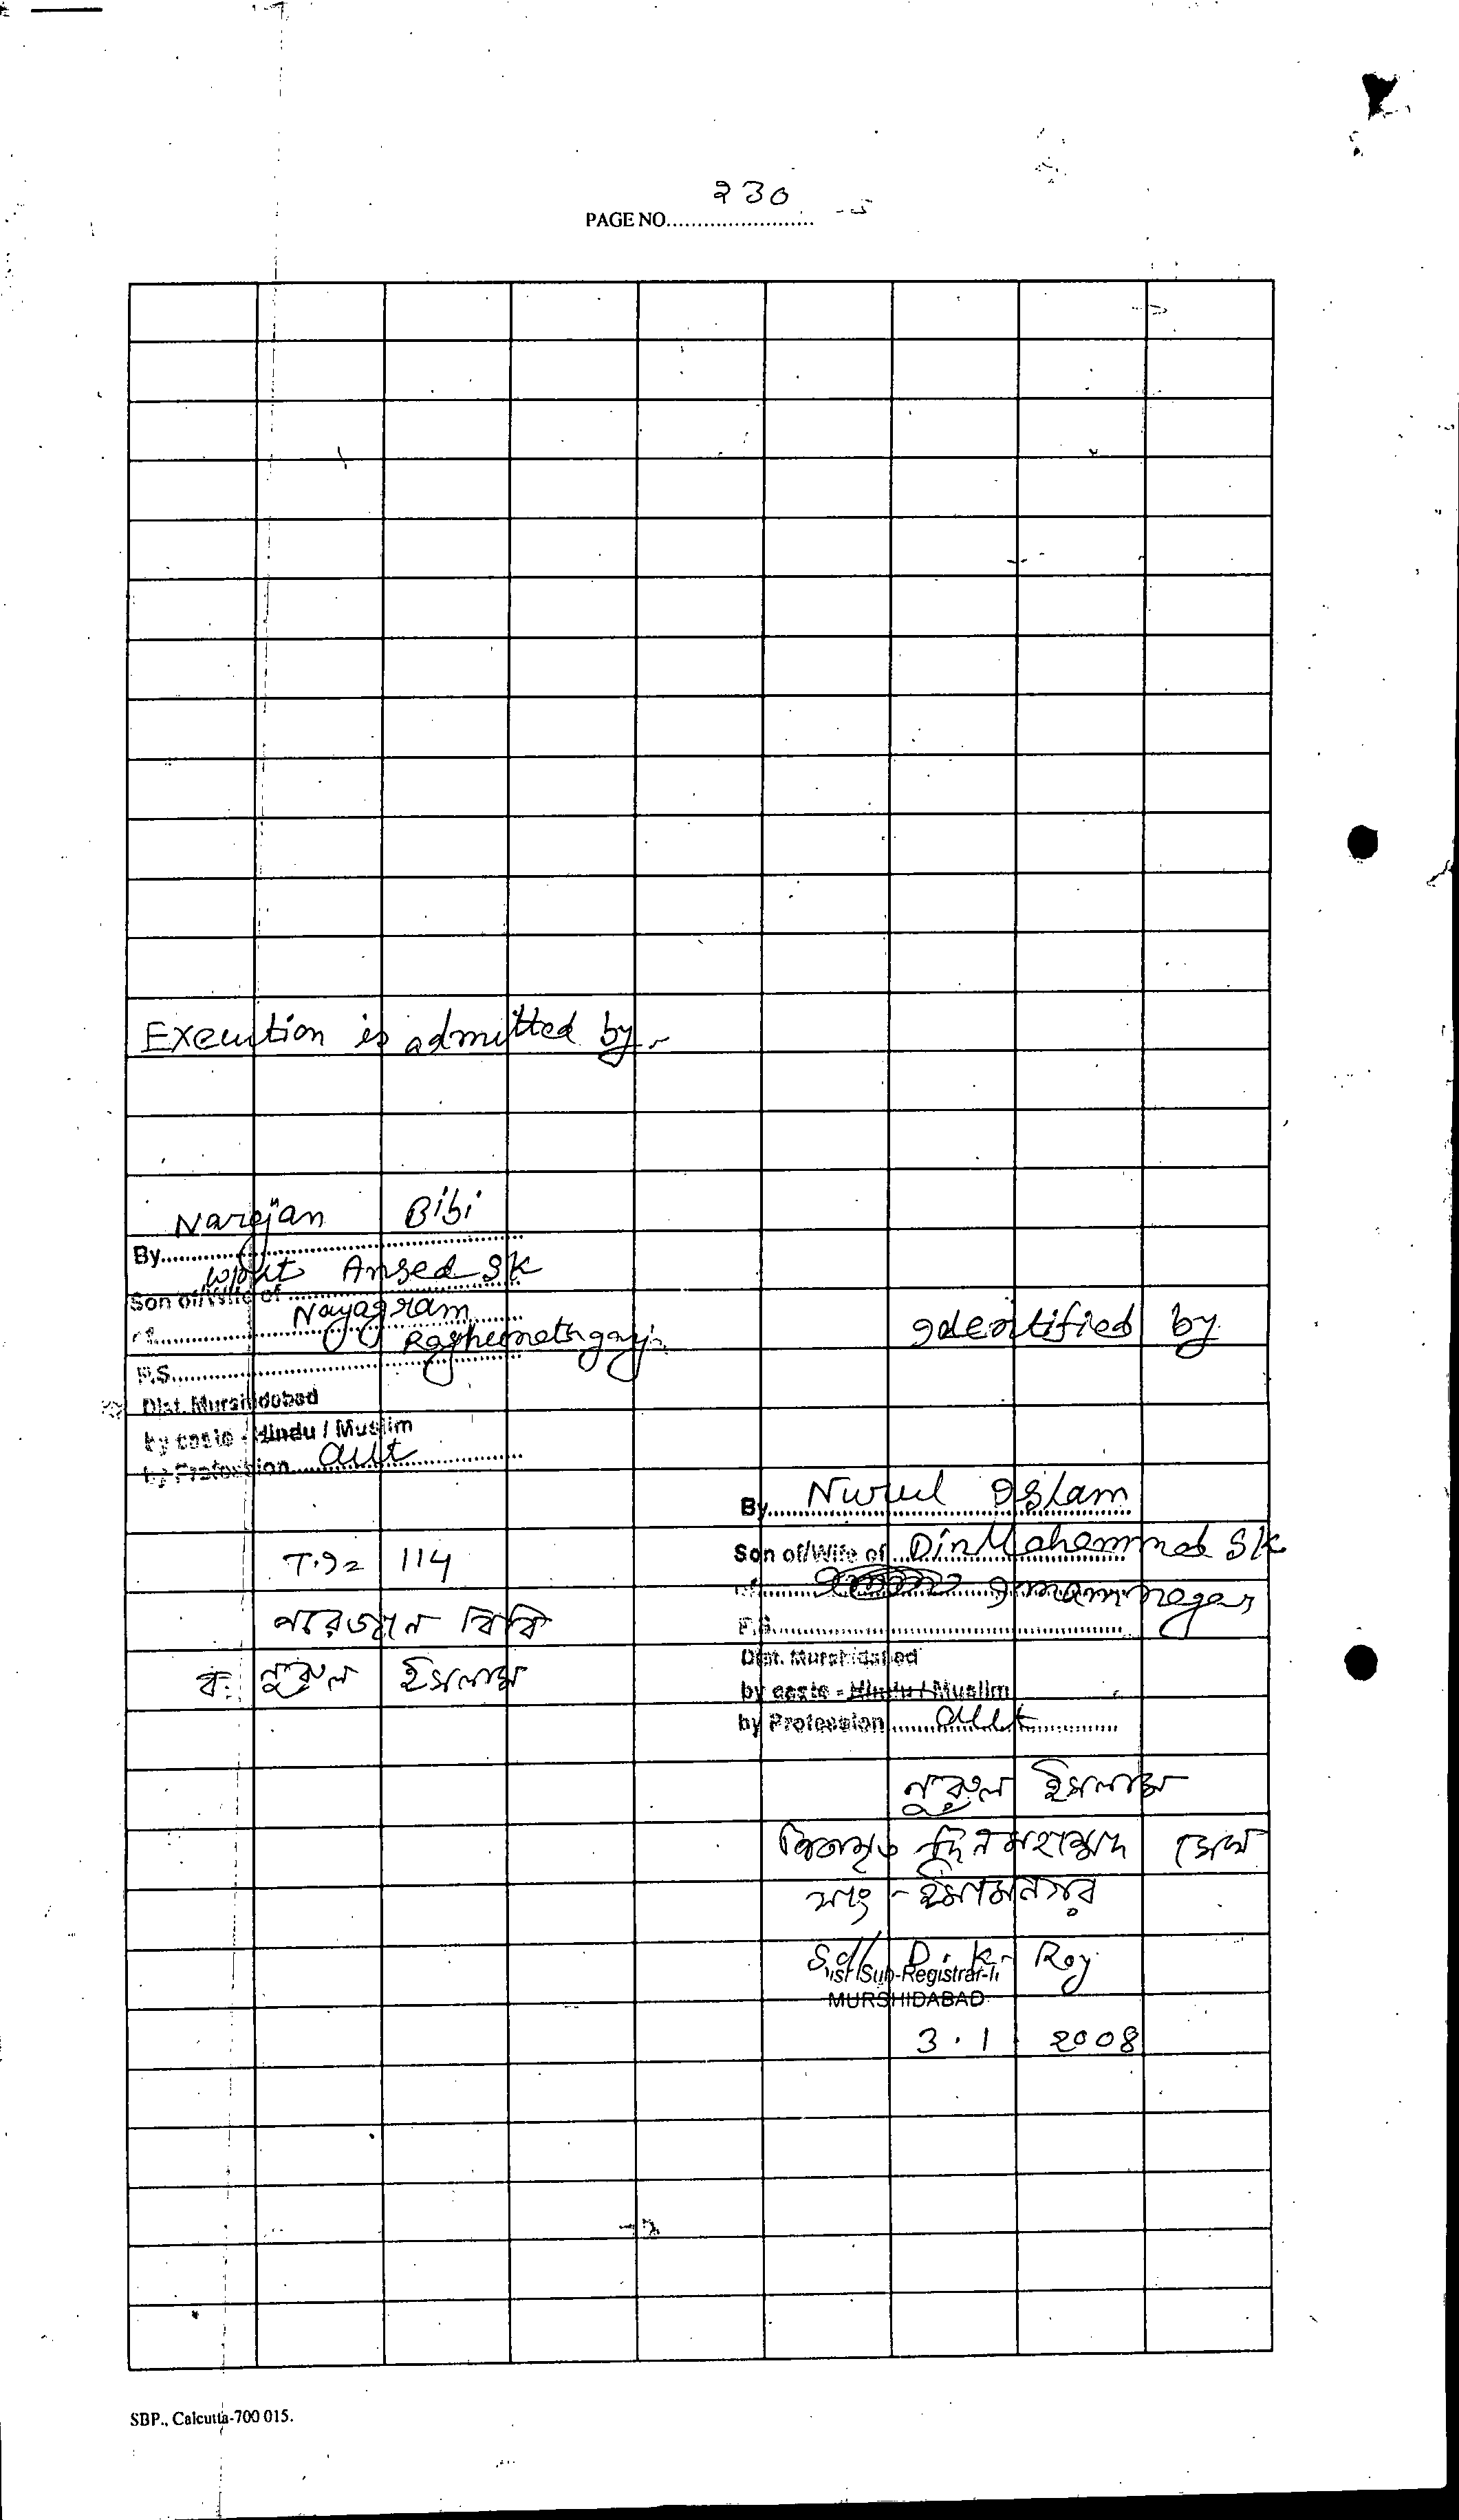 230
PAGE NO.
Execution is admitted by -
Narejan Bibi
By
Ansed SK
Son of/Wife of
Nayagram
Raghunathganj
P.S.
Dist. Murshidabad
by caste - Hindu / Muslim
by Profession
Identified by
By Nurul Islam
Son of/Wife of Din Mahammad SK
of Imamnagar
P.S.
Dist. Murshidabad
by caste - Hindu / Muslim
by Profession
114
নরেজান বিবি
ব: নুরুল ইসলাম
নুরুল ইসলাম
দিনমহাম্মদ সেখ
সাং - ইমামনগর
Sd/ D. K. Roy
Dist Sub-Registrar-II
MURSHIDABAD
3.1 2008
SBP., Calcutta-700 015.